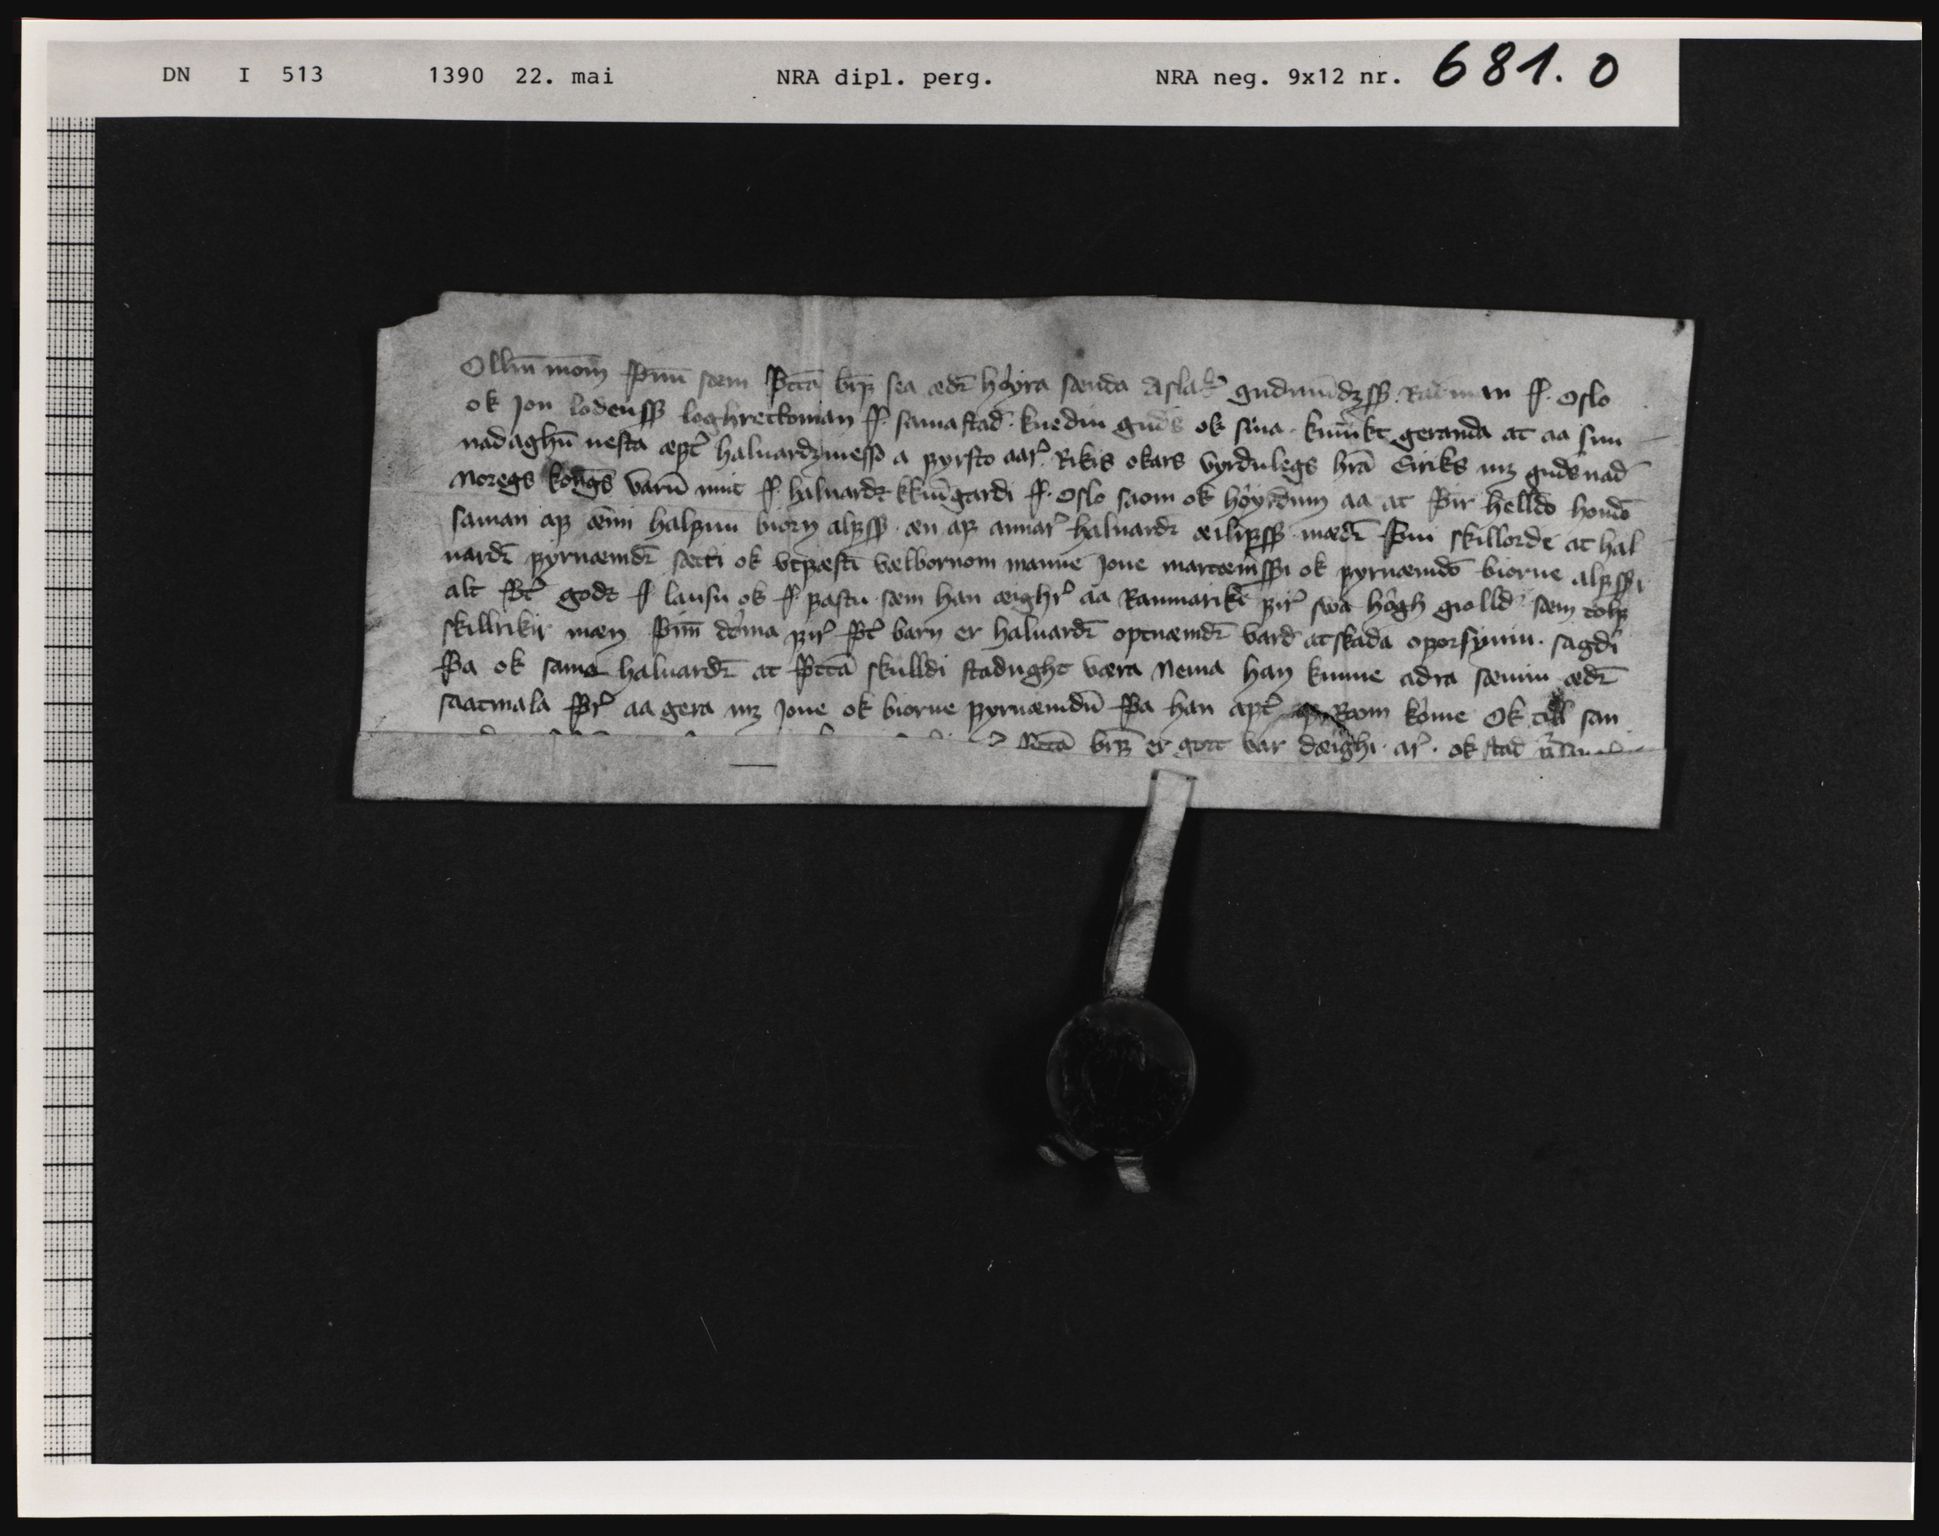 DN I 513 1390 22. mai NRA dipl. perg. NRA neg. 9x12 nr. 681.0
Ollm̄ mom̄ þm̄ sæm þẜta bref sea æðr høyra sænda Aslakr gudmūdzsſ. Radman j. Oslo
ok Jon lodensſ loghrettoman j. sama stad. kuediu guds ok sina. kūnikt geranda at aa sun
nadaghū nesta æpt haluardzmesso a fyrsto aar Rikis okars vyrdulegs hrā Eiriks mz guds nad
Noregs kongs varū mit j. haluardz kkiugardi j. Oslo saom ok høyrdum aa at þeir helldo hondō
saman af ænni halfuu biorn alfsſ. æn af annar haluardr æilifsſ. mædr þm skillorde at hal
uardr fyrnæmdr sætti ok vtfæsti vælbornom manne Jone martæinsſi ok fyrnæmdō biorne alfsſi
alt þt godz j lausu ok j fastu sæm han æighr aa Raumarike fir swa høgh giolld sæm tolf
skillrikir mæn þm døma fir þt barn er haluardr optnæmdr vard at skada oforsyniu. sagdi
þa ok sama haluardr at þẜta skulldi stadught væra nema han kunne adra sæmiu ædr
saatmala þr aa gera mz Jone ok biorne fyrnæmdū þa han apt af Room kome Ok till san
þẜta bref er gort var dæighi. ar. ok stad